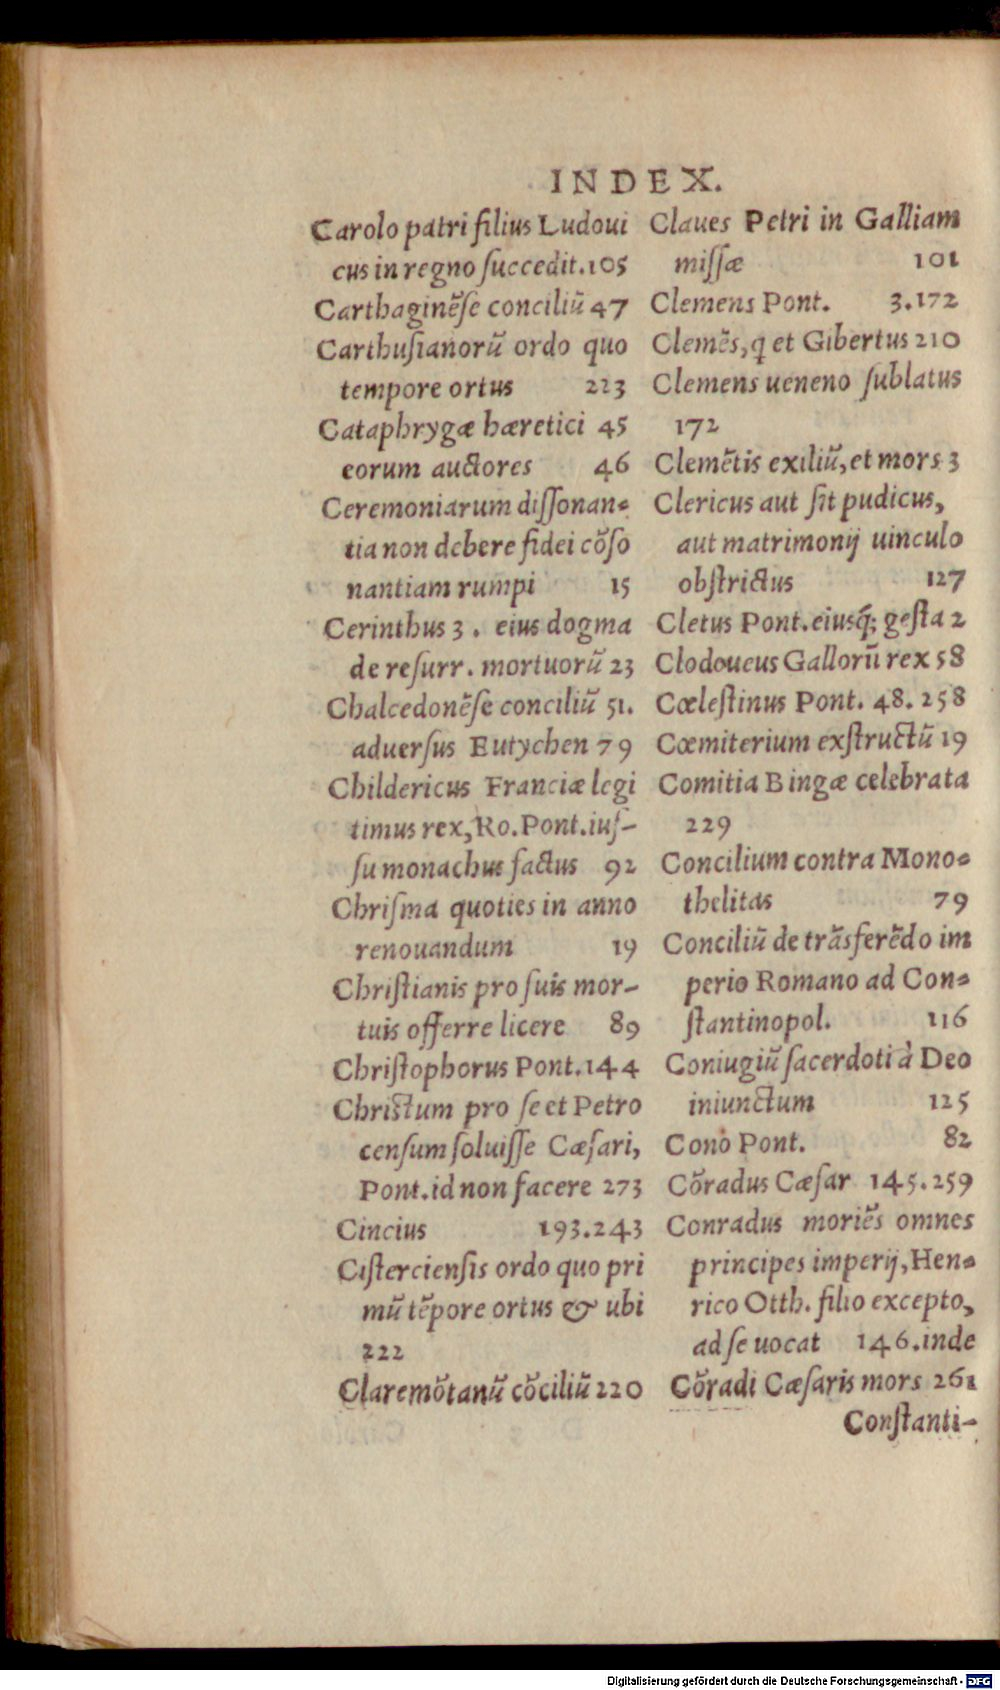 INDEX.
Carolo patri filius Ludoui
cus in regno ſuccedit.105
Carthaginẽſe conciliũ 47
Carthuſianorũ ordo quo
tempore ortus 223
Cataphrygæ hæretici 45
eorum auctores 46
Ceremoniarum diſſonan-
tia non debere fidei cõſo
nantiam rumpi 15
Cerinthus 3. eius dogma
de reſurr. mortuorũ 23
Chalcedonẽſe conciliũ 51.
aduerſus Eutychen 79
Childericus Franciæ legi
timus rex, Ro. Pont. iuſ-
ſu monachus factus 92
Chriſma quoties in anno
renouandum 19
Chriſtianis pro ſuis mor-
tuis offerre licere 89
Chriſtophorus Pont.144
Chriſtum pro ſe et Petro
cenſum ſoluiſſe Cæſari,
Pont. id non facere 273
Cincius 193.243
Ciſtercienſis ordo quo pri
mũ tẽpore ortus & ubi
222
Claremõtanũ cõciliũ 220
Claues Petri in Galliam
miſſæ 101
Clemens Pont. 3.172
Clemẽs, q et Gibertus 210
Clemens ueneno ſublatus
172
Clemẽtis exiliũ, et mors 3
Clericus aut ſit pudicus,
aut matrimonij uinculo
obſtrictus 127
Cletus Pont. eiusq́; geſta 2
Clodoueus Gallorũ rex 58
Cœleſtinus Pont. 48.258
Cœmiterium exſtructũ 19
Comitia Bingæ celebrata
229
Concilium contra Mono-
thelitas 79
Conciliũ de trãsferẽdo im
perio Romano ad Con-
ſtantinopol. 116
Coniugiũ ſacerdoti à Deo
iniunctum 125
Cono Pont. 82
Cõradus Cæſar 145.259
Conradus moriẽs omnes
principes imperij, Hen-
rico Otth. filio excepto,
ad ſe uocat 146.inde
Cõradi Cæſaris mors 261
Conſtanti-
Digitalisierung gefördert durch die Deutsche Forschungsgemeinschaft - DFG